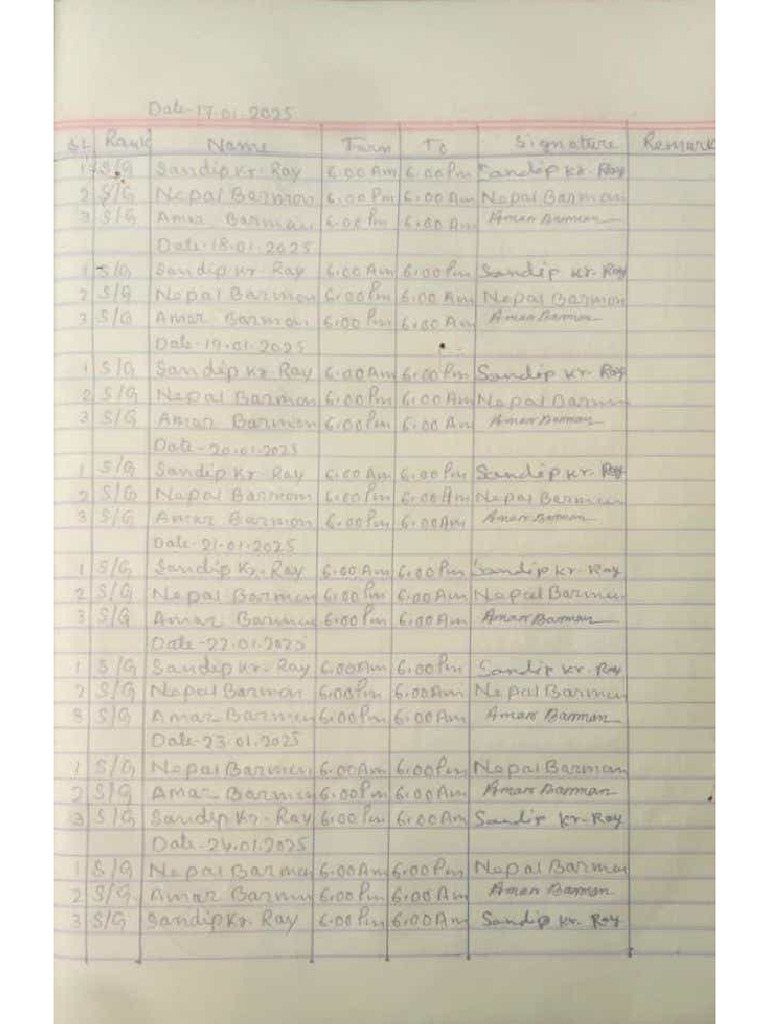 Date-17.01.2025
Sl. Rank Name Turn To Signature Remark
1 S/G Sandip Kr. Ray 6.00 Am 6.00 Pm Sandip Kr. Ray
2 S/G Nepal Barmon 6.00 Pm 6.00 Am Nepal Barmon
3 S/G Amar Barman 6.00 Pm 6.00 Am Aman Barman
Date-18.01.2025
1 S/G Sandip Kr. Ray 6.00 Am 6.00 Pm Sandip Kr. Ray
2 S/G Nepal Barmon 6.00 Pm 6.00 Am Nepal Barmon
3 S/G Amar Barmon 6.00 Pm 6.00 Am Aman Barman
Date-19.01.2025
1 S/G Sandip Kr. Ray 6.00 Am 6.00 Pm Sandip Kr. Ray
2 S/G Nepal Barmon 6.00 Pm 6.00 Am Nepal Barmun
3 S/G Amar Barmon 6.00 Pm 6.00 Am Aman Barman
Date-20.01.2025
1 S/G Sandip Kr. Ray 6.00 Am 6.00 Pm Sandip Kr. Ray
2 S/G Nepal Barmon 6.00 Pm 6.00 Am Nepal Barmun
3 S/G Amar Barmon 6.00 Pm 6.00 Am Aman Barman
Date-21.01.2025
1 S/G Sandip Kr. Ray 6.00 Am 6.00 Pm Sandip Kr. Ray
2 S/G Nepal Barmun 6.00 Pm 6.00 Am Nepal Barmu
3 S/G Amar Barmun 6.00 Pm 6.00 Am Aman Barman
Date-22.01.2025
1 S/G Sandip Kr. Ray 6.00 Am 6.00 Pm Sandip Kr. Ray
2 S/G Nepal Barmon 6.00 Pm 6.00 Am Nepal Barmun
3 S/G Amar Barmun 6.00 Pm 6.00 Am Aman Barman
Date-23.01.2025
1 S/G Nepal Barmun 6.00 Am 6.00 Pm Nepal Barman
2 S/G Amar Barmun 6.00 Pm 6.00 Am Aman Barman
3 S/G Sandip Kr. Ray 6.00 Pm 6.00 Am Sandip Kr. Ray
Date-24.01.2025
1 S/G Nepal Barmun 6.00 Am 6.00 Pm Nepal Barmun
2 S/G Amar Barmun 6.00 Pm 6.00 Am Aman Barman
3 S/G Sandip Kr. Ray 6.00 Pm 6.00 Am Sandip Kr. Ray